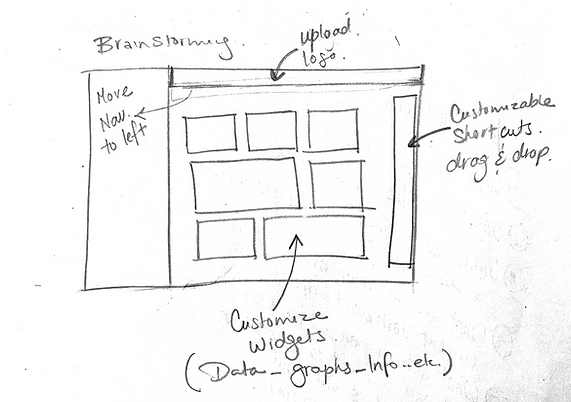 Brainstorming.
upload
logo.
Move
Nav.
to left
Customizable
Shortcuts.
drag & drop.
Customize
Widgets
(Data_ graphs_Info..etc.)